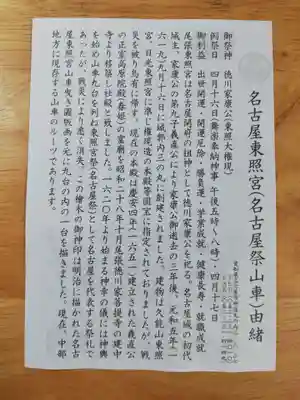 名古屋東照宮(名古屋祭山車)由緒
御祭神　徳川家康公(東照大権現)
例祭日　四月十六日(舞楽奉納神事　午後五時～八時)・四月十七日
御利益　出世開運・開運厄除・勝負運・学業成就・健康長寿・就職成就
尾張東照宮は名古屋開府の祖神として徳川家康公を祀る。名古屋城の初代
城主、家康公の第九子義直公により家康公御逝去の三年後、元和五年(一
六一九)九月十六日に城郭内三の丸に創建されました。建物は久能山東照
宮、日光東照宮に準じ権現造の本殿等国宝に指定されておりましたが、戦
災を被り烏有に帰す。現在の本殿は慶安四年(一六五一)建立された義直公
の正室高原院殿(春姫)の霊廟を昭和二十八年十月尾張徳川家菩提寺の建中
寺より移築し社殿と致しました。一六二〇年より始まる神幸の儀には神輿
を始め山車九台を列ね東照宮祭(名古屋祭)として名古屋を代表する祭礼で
あったが、戦災により悉く消失。この檜木の御神印は明治に描かれた名古
屋東照宮山車曳き図版画を元に九台の内の一台を描きました。現在、中部
地方に現存する山車のルーツであります。